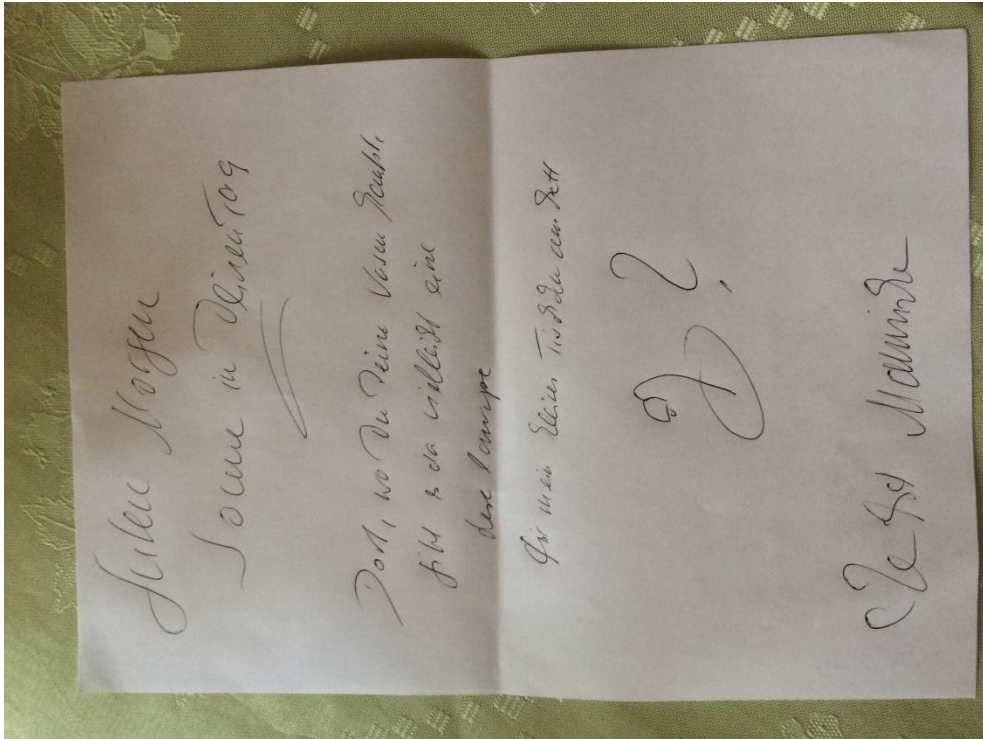 Guten Morgen
Sonne in Deinen Tag
Dort, wo Du Deine Vasen kaufst,
gibt's da vielleicht eine
Leselampe
für mein kleines Tischchen am Bett
?
Maminke